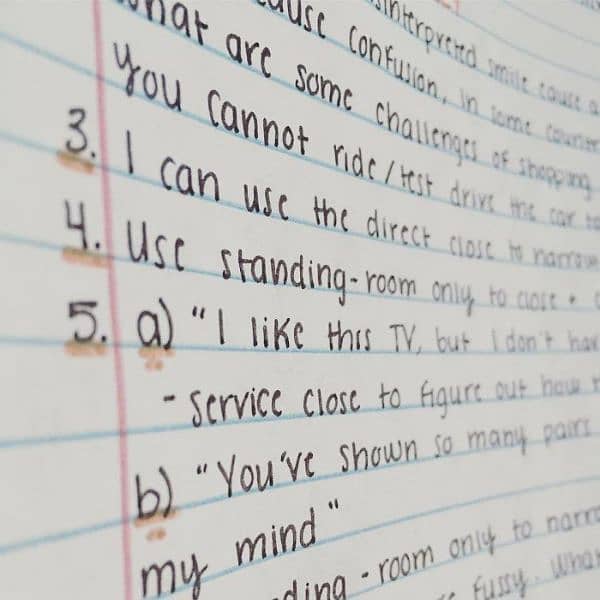 misinterpreted smile cause a
cause confusion, in some
What are some challenges of shopping
you cannot ride/test drive the car to
3. I can use the direct close to narrow
4. Use standing-room only to close +
5. a) "I like this TV, but I don't
- service close to figure out how
b) "You've shown so many pairs
my mind"
-room only to
fussy.